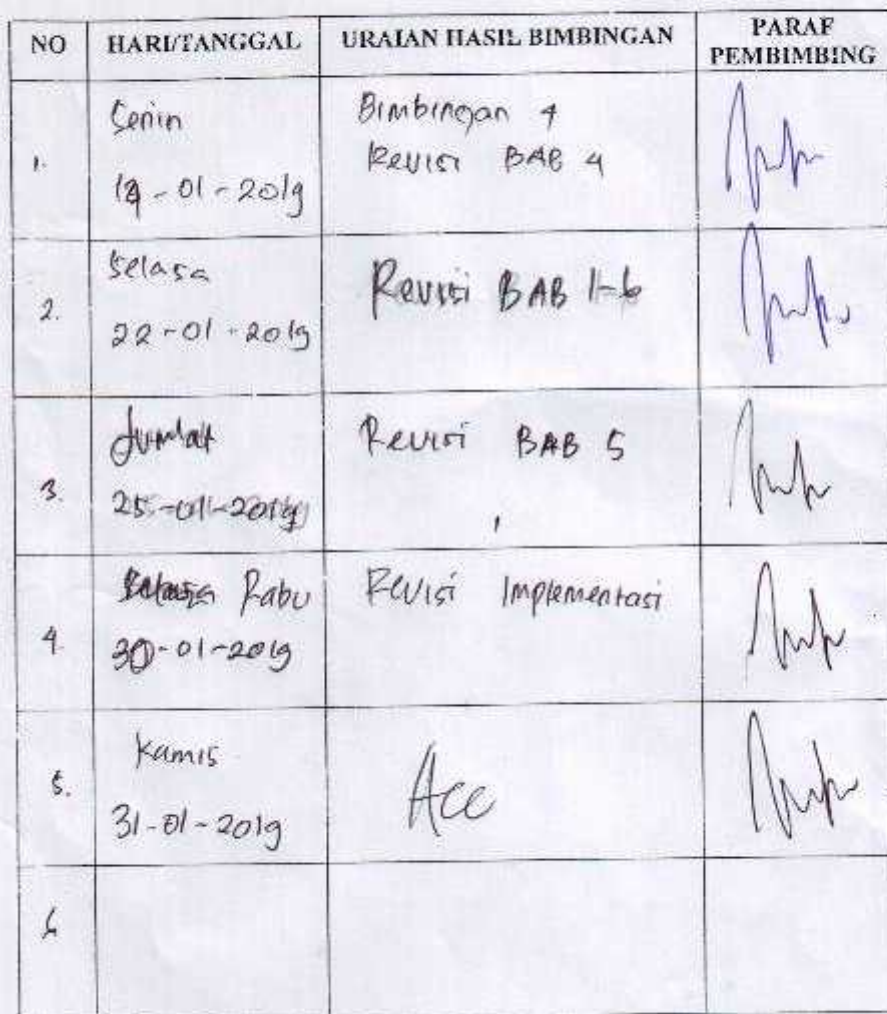 NO HARI/TANGGAL URAIAN HASIL BIMBINGAN PARAF PEMBIMBING
1.
Senin
14-01-2019
Bimbingan 4
Revisi BAB 4
2.
Selasa
22-01-2019
Revisi BAB 1-6
3.
Jumlat
25-01-2019
Revisi BAB 5
4.
Rabu
30-01-2019
Revisi Implementasi
5.
Kamis
31-01-2019
Acc
6